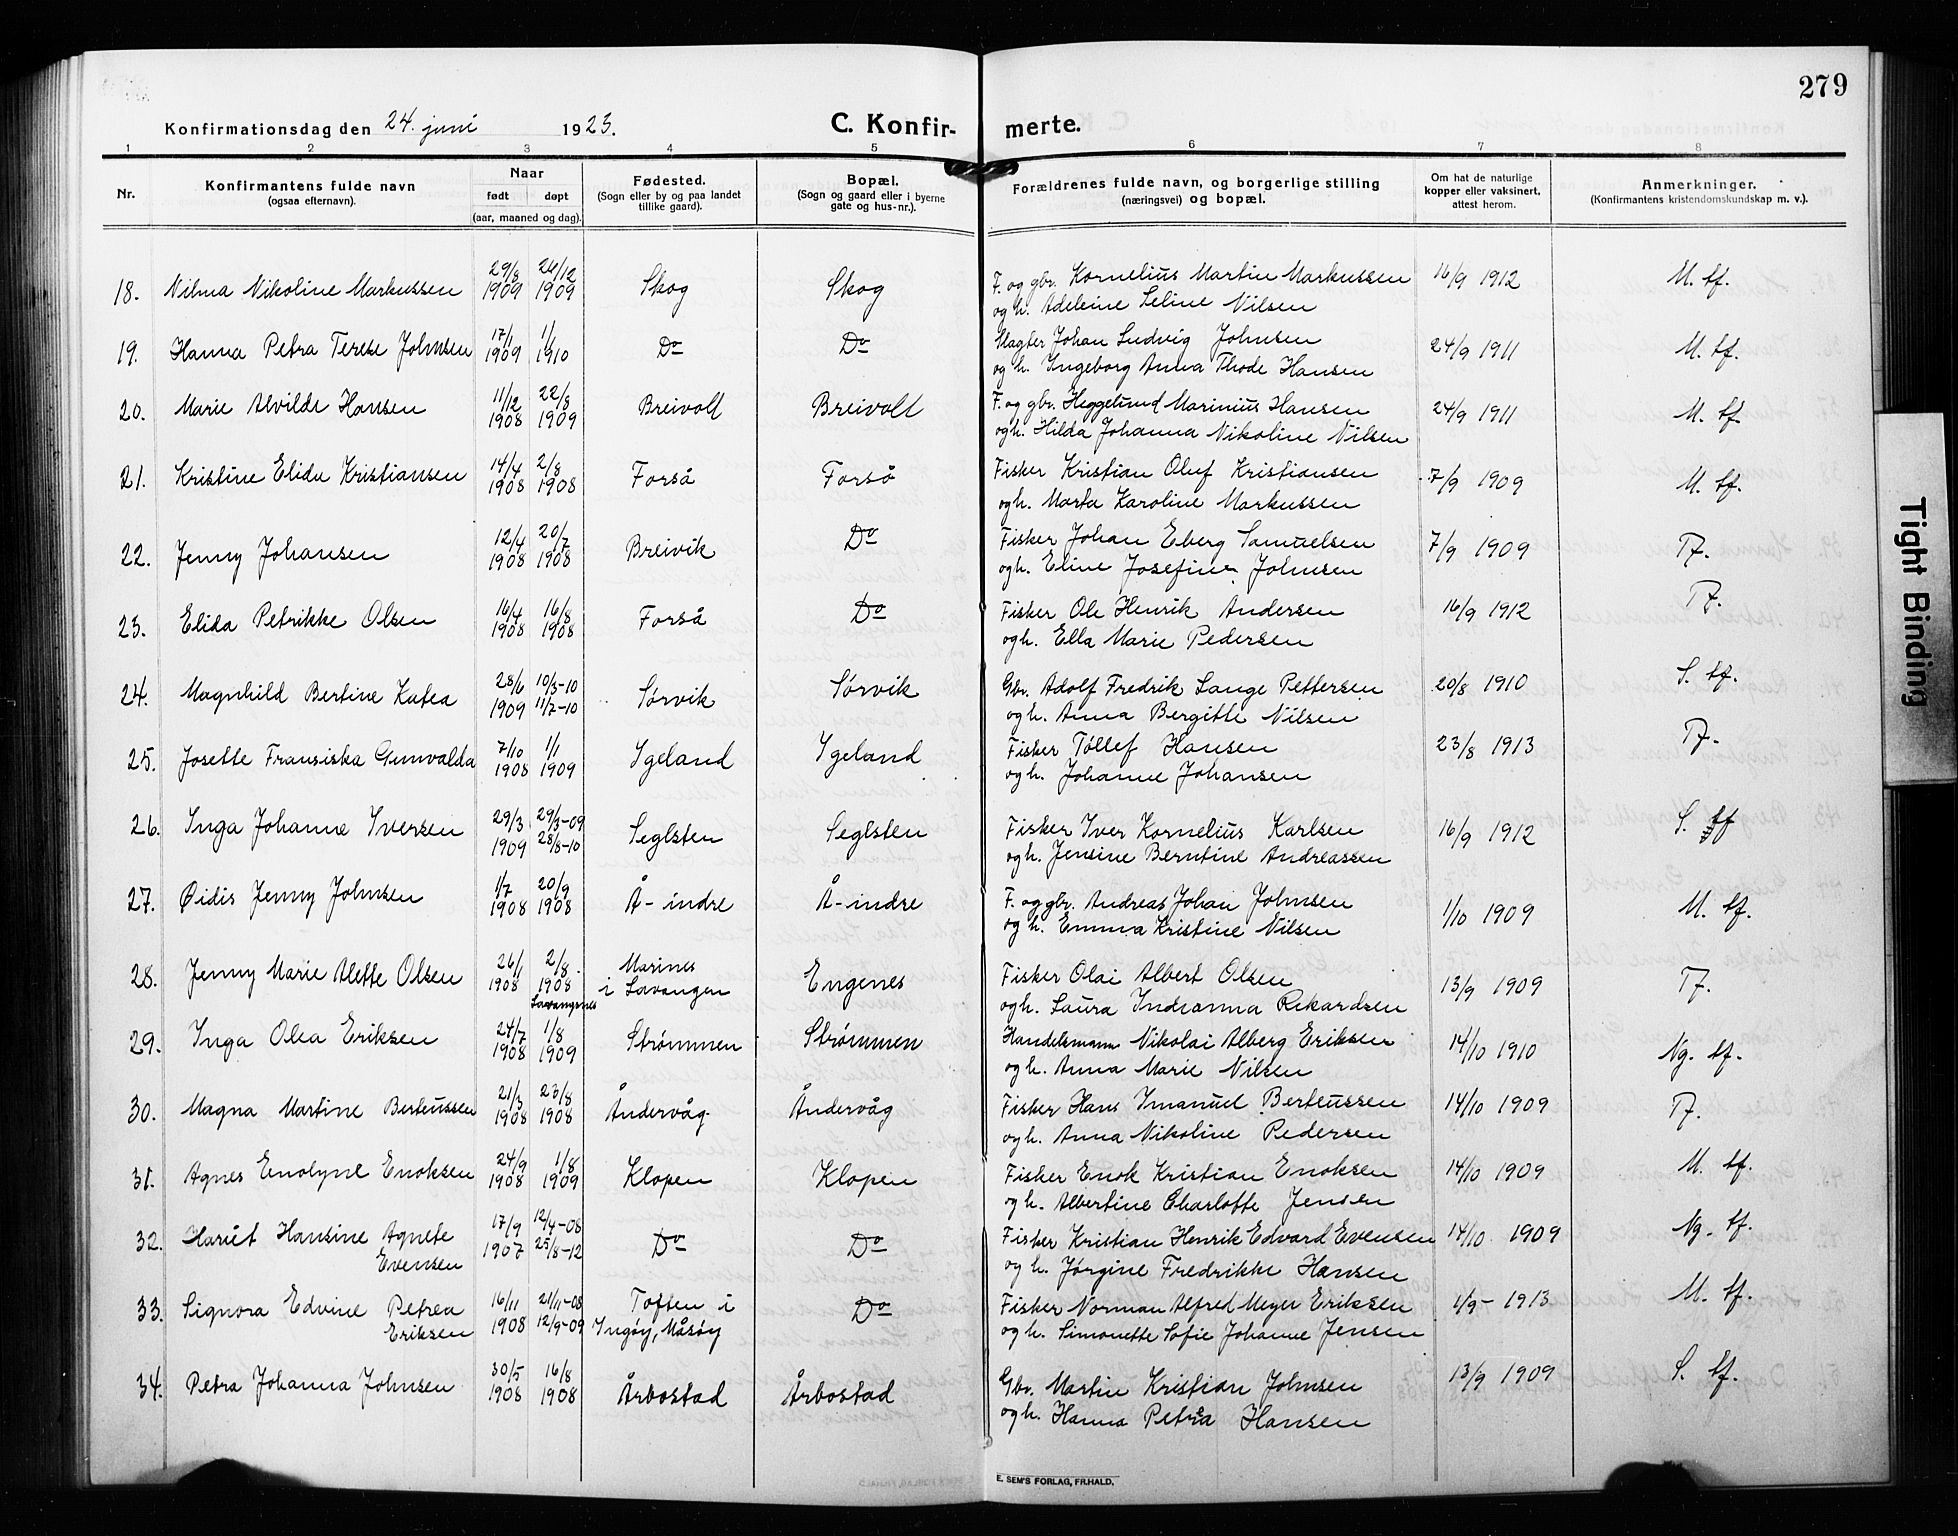 279
Konfirmationsdag den 24. juni 1923. C. Konfir- merte.
1 2 3 4 5 6 7 8
Nr. Konfirmantens fulde navn (ogsaa efternavn). Naar født døpt (aar, maaned og dag). Fødested. (Sogn eller by og paa landet tillike gaard). Bopæl. (Sogn og gaard eller i byerne gate og hus-nr.). Forældrenes fulde navn, og borgerlige stilling (næringsvei) og bopæl. Om hat de naturlige kopper eller vaksinert, attest herom. Anmerkninger. (Konfirmantens kristendomskundskap m. v.).
18. Vilma Nikoline Markussen 29/8 1909 26/12 1909 Skog Skog F. og gbr. Kornelius Martin Markussen 16/9 1912 M. tf.
og h. Adeleine Seline Nilsen
19. Hanna Petra Terese Johnsen 17/1 1909 1/1 1910 Do Do Magter Johan Ludvig Johnsen 24/9 1911 M. tf.
og h. Ingeborg Anna Thode Hansen
20. Marie Alvilde Hansen 11/12 1908 22/8 1909 Breivoll Breivoll F. og gbr. Heggelund Marinius Hansen 24/9 1911 M. tf.
og h. Hilda Johanna Nikoline Nilsen
21. Kristine Elida Kristiansen 14/4 1908 2/8 1908 Forså Forså Fisker Kristian Oluf Kristiansen 7/9 1909 M. tf.
og h. Marta Karoline Markussen
22. Jenny Johansen 12/4 1908 20/7 1908 Breivik Do Fisker Johan Eberg Samuelsen 7/9 1909 Tf.
og h. Eline Josefine Johnsen
23. Elida Petrikke Olsen 16/4 1908 16/8 1908 Forså Do Fisker Ole Henrik Andersen 16/9 1912 Tf.
og h. Ella Marie Pedersen
24. Magnhild Bertine Katea 28/6 1909 10/3-10 11/7-10 Sørvik Sørvik Gbr. Adolf Fredrik Lange Pettersen 20/8 1910 S. tf.
og h. Anna Bergitte Nilsen
25. Josette Fransiska Gunvalda 7/10 1908 1/1 1909 Ygeland Ygeland Fisker Tøllef Hansen 23/8 1913 Tf.
og h. Johanne Johansen
26. Inga Johanne Iversen 29/3 1909 29/3-09 28/8-10 Seglsten Seglsten Fisker Iver Kornelius Karlsen 16/9 1912 S. tf
og h. Jensine Berntine Andreassen
27. Øidis Jenny Johnsen 1/7 1908 20/9 1908 Å-indre Å-indre F. og gbr. Andreas Johan Johnsen 1/10 1909 M. tf.
og h. Emma Kristine Nilsen
28. Jenny Marie Alette Olsen 26/1 1908 2/8 1908 Lavangsnes Marines i Lavangen Engenes Fisker Olai Albert Olsen 13/9 1909 Tf.
og h. Laura Indianna Rikardsen
29. Inga Olea Eriksen 24/7 1908 1/8 1909 Strømmen Strømmen Handelsmann Nikolai Alberg Eriksen 14/10 1910 Ng. tf.
og h. Anna Marie Nilsen
30. Magna Martine Berteussen 21/3 1908 23/8 1908 Åndervåg Åndervåg Fisker Hans Imanuel Berteussen 14/10 1909 Tf.
og h. Anna Nikoline Pedersen
31. Agnes Enolyne Enoksen 24/9 1908 1/8 1909 Klopen Klopen Fisker Enok Kristian Enoksen 14/10 1909 M. tf.
og h. Albertine Charlotte Jensen
32. Hariet Hansine Agnete 17/9 1907 12/4-08 25/8-12 Do Do Fisker Kristian Henrik Edvard Evensen 14/10 1909 Ng. tf.
Evensen og h. Jørgine Fredrikke Hansen
33. Signora Edvine Petrea 16/11 1908 21/11-08 12/9-09 Toften i Ingøy, Måsøy Do Fisker Norman Alfred Meyer Eriksen 1/9- 1913 M. tf.
Eriksen og h. Simonette Sofie Johanne Jensen
34. Petra Johanna Johnsen 30/5 1908 16/8 1908 Årbostad Årbostad Gbr. Martin Kristian Johnsen 13/9 1909 S. tf.
og h. Hanna Petrea Hansen
E. SEM'S FORLAG, FR.HALD.
Tight Binding